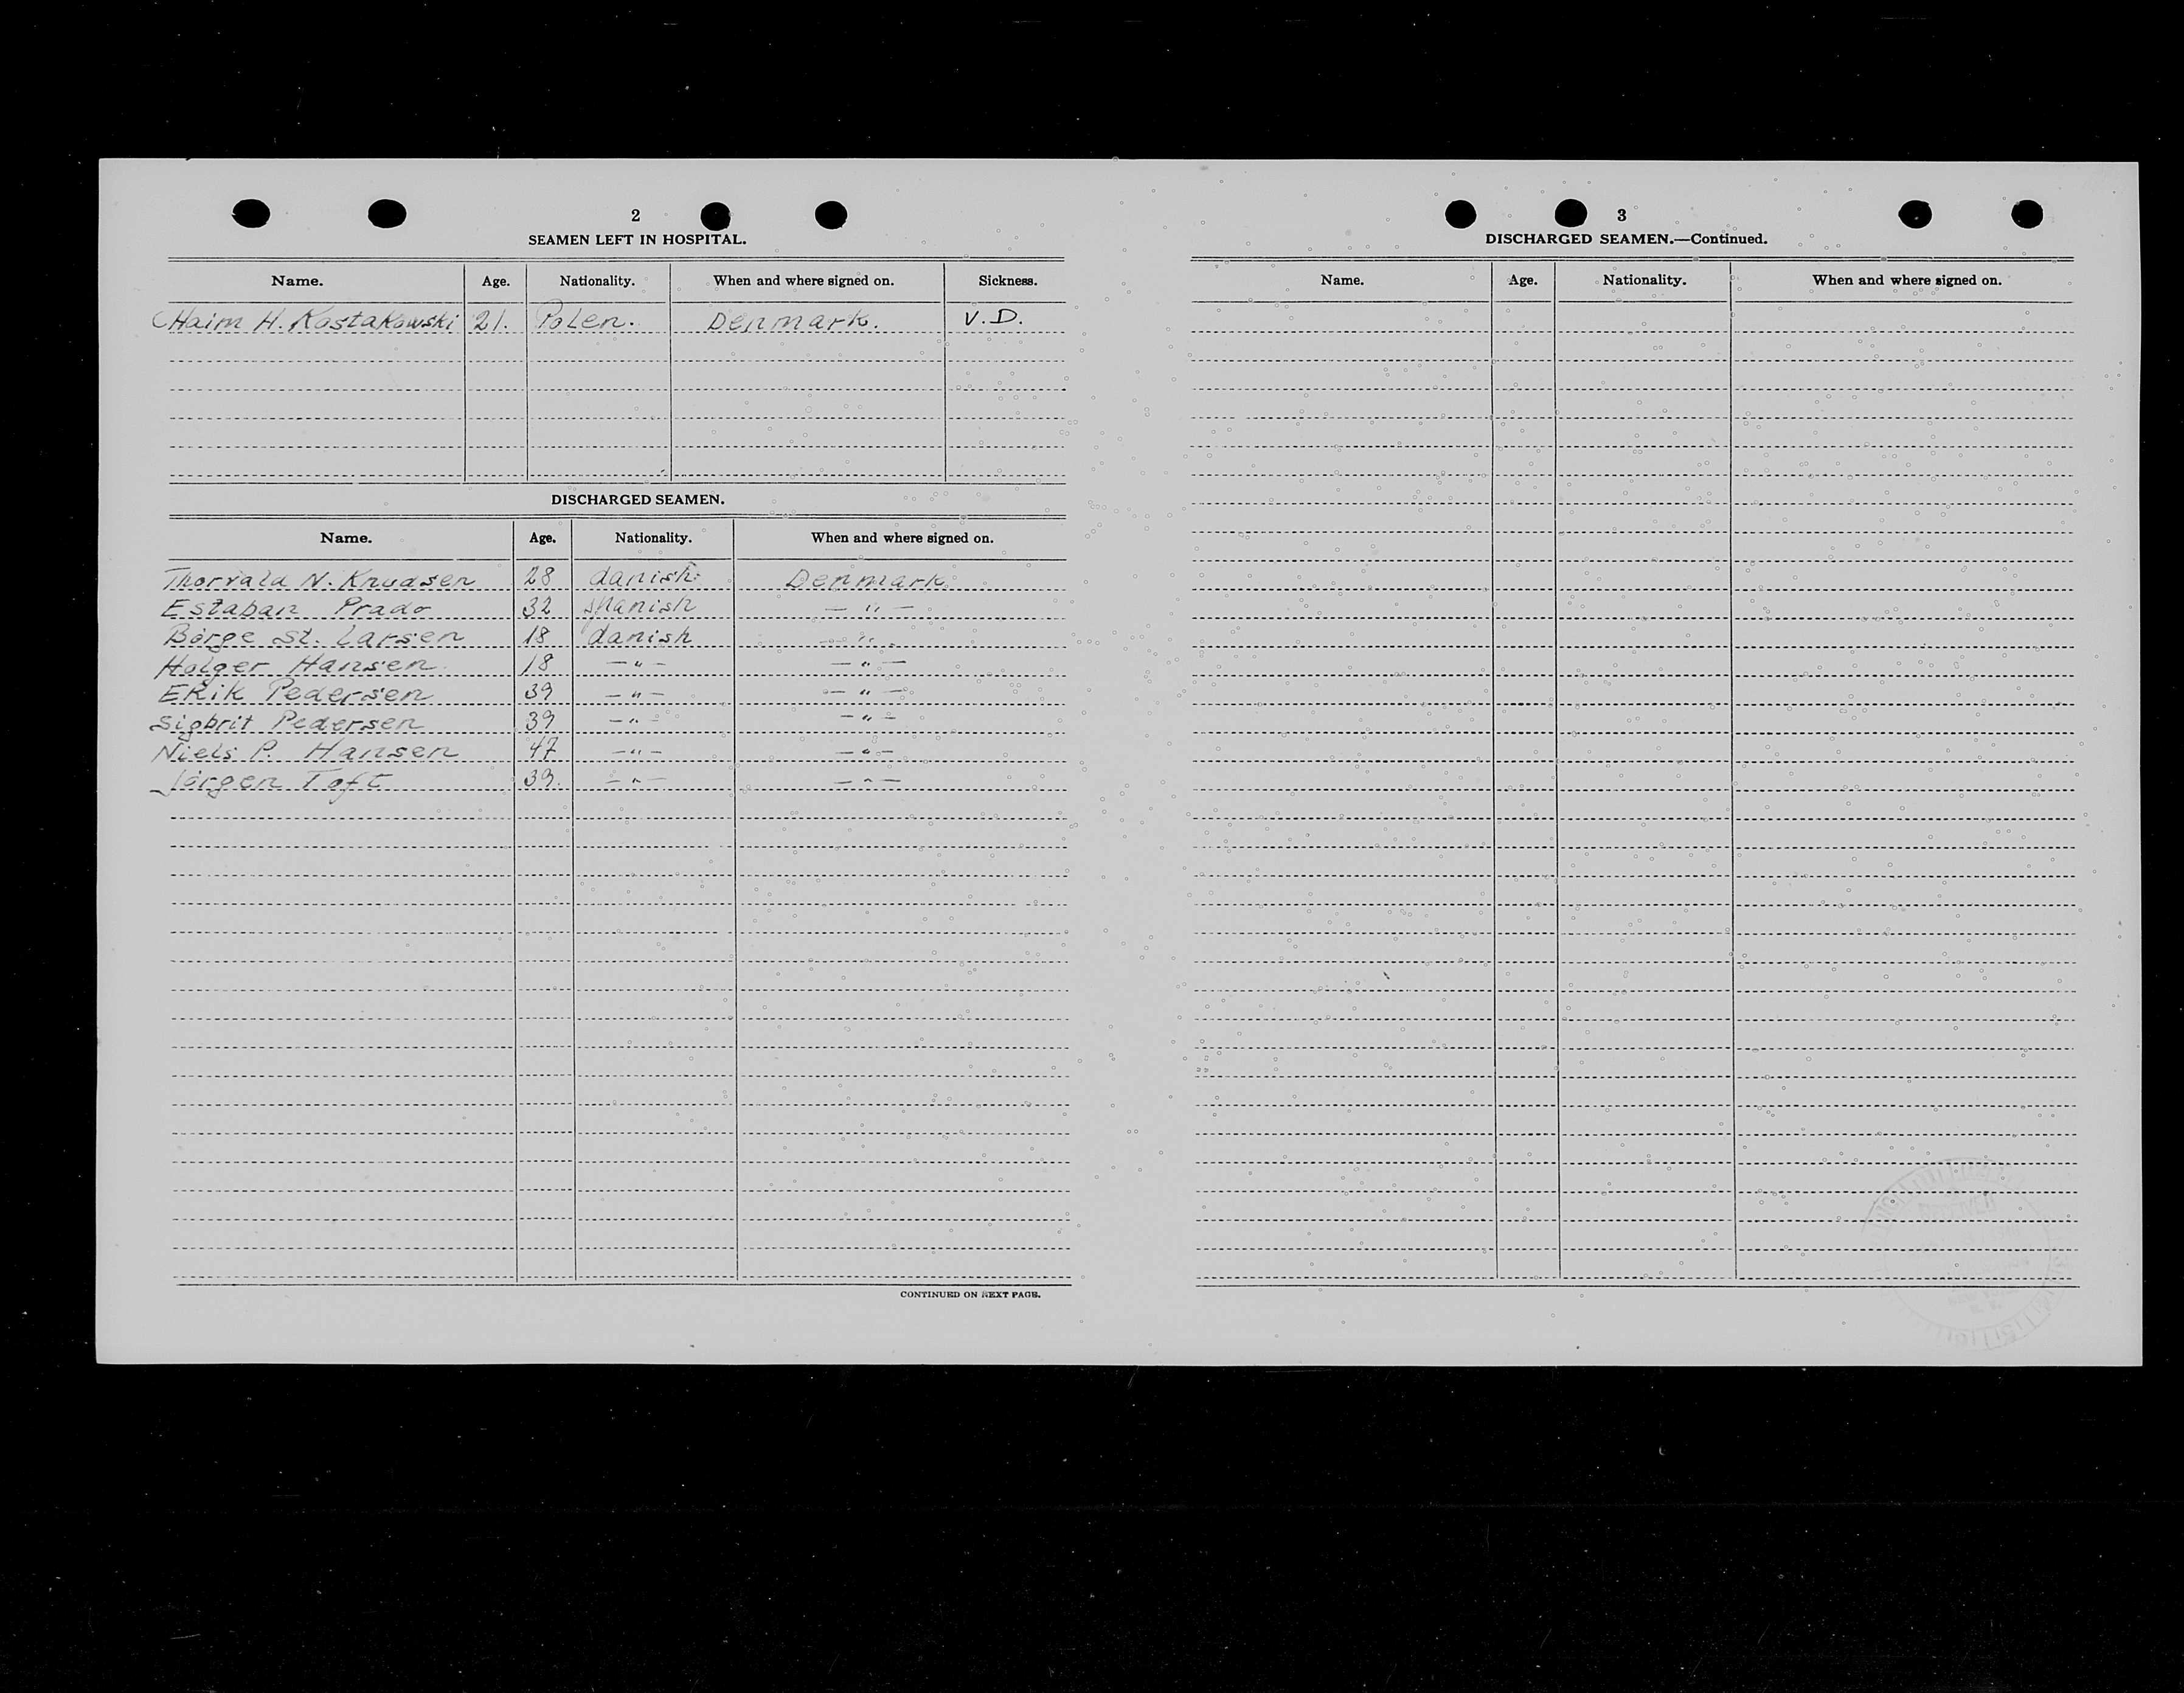 2
SEAMEN LEFT IN HOSPITAL.
Name. Age. Nationality. When and where signed on. Sickness.
CHaim H. Kostakowski 21. Polen. Denmark. V.D.
DISCHARGED SEAMEN.
Name. Age. Nationality. When and where signed on.
Thorvald N. Knudsen 28 danish Denmark.
Estaban Prado 32 spanish — " —
Börge St. Larsen 18 danish — " —
Holger Hansen 18 — " — — " —
Erik Pedersen 39 — " — — " —
Sigbrit Pedersen 39 — " — — " —
Niels P. Hansen 47 — " — — " —
Jörgen Toft 39. — " — — " —
CONTINUED ON NEXT PAGE.
3
DISCHARGED SEAMEN.—Continued.
Name. Age. Nationality. When and where signed on.